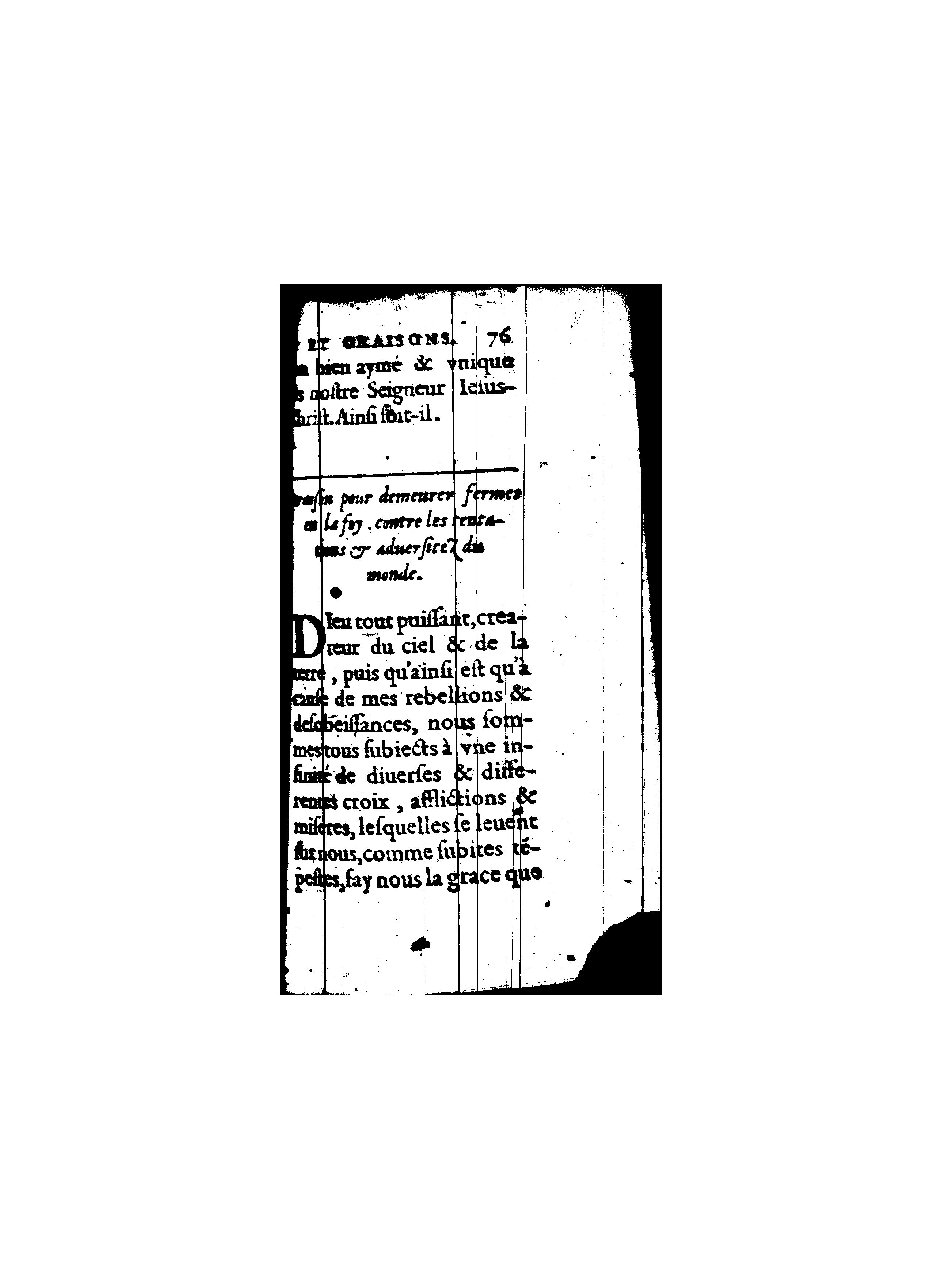 ET ORAISONS. 76
bien aymé & vnique
nostre Seigneur Iesus-
Ainsi soit-il.
pour demeurer fermes
en la foy, contre les tenta-
tions & aduersitez du
monde.
DIeu tout puissant, crea-
teur du ciel & de la
terre, puis qu'ainsi est qu'à
cause de mes rebellions &
desobeissances, nous som-
mes tous subiects à vne in-
finité de diuerses & diffe-
rentes croix, afflictions &
miseres, lesquelles se leuent
sur nous, comme subites té-
pestes, fay nous la grace que